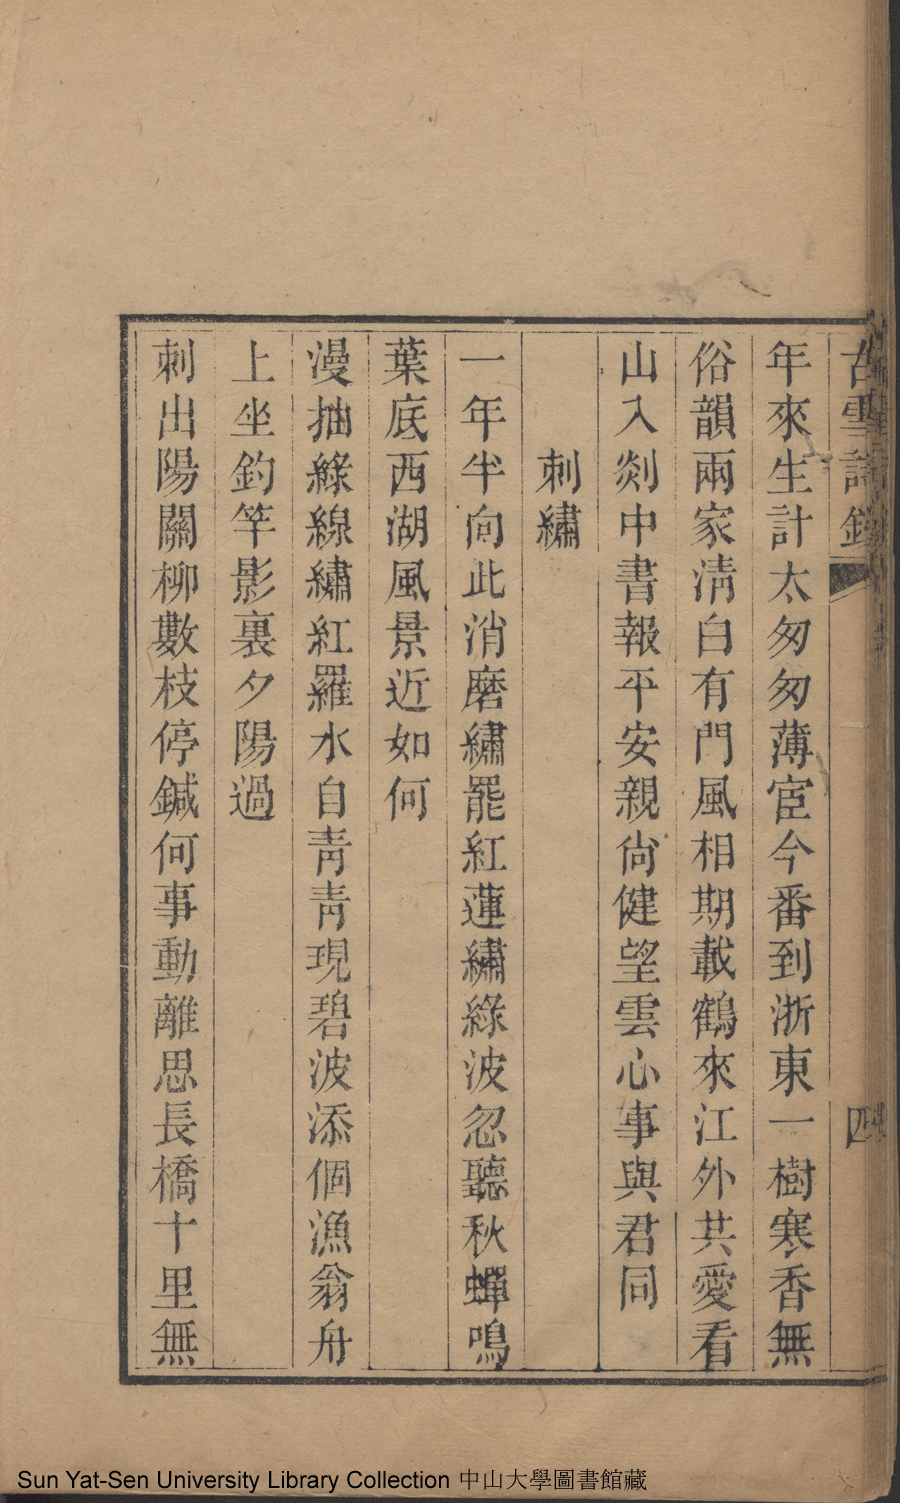 古雪詩鈔
四
年來生計太匆匆薄宦今番到浙東一樹寒香無
俗韻兩家淸白有門風相期載鶴來江外共愛看
山入剡中書報平安親尙健望雲心事與君同
刺繡
一年半向此消磨繡罷紅蓮繡綠波忽聽秋蟬鳴
葉底西湖風景近如何
漫抽綠線繡紅羅水自靑靑現碧波添個漁翁舟
上坐釣竿影裏夕陽過
刺出陽關柳數枝停鍼何事動離思長橋十里無
Sun Yat-Sen University Library Collection 中山大學圖書館藏